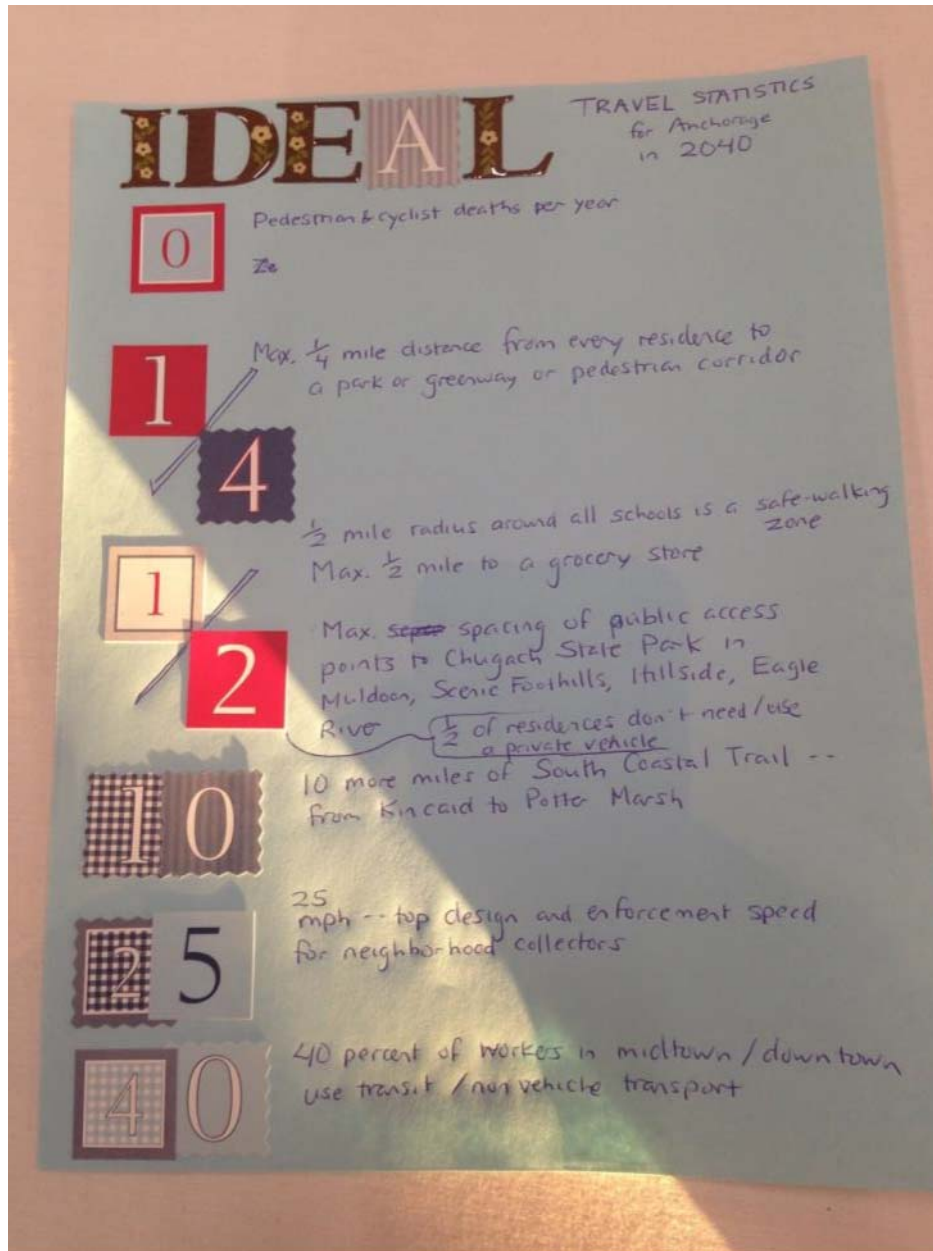 IDEAL
TRAVEL STATISTICS
for Anchorage
in 2040
0
Pedestrian & cyclist deaths per year
Ze
1/4
Max. 1/4 mile distance from every residence to
a park or greenway or pedestrian corridor
1/2
1/2 mile radius around all schools is a safe-walking
zone
Max. 1/2 mile to a grocery store
Max. spacing of public access
points to Chugach State Park in
Muldoon, Scenic Foothills, Hillside, Eagle
River
1/2 of residences don't need/use
a private vehicle
10
10 more miles of South Coastal Trail --
from Kincaid to Potter Marsh
25
25
mph -- top design and enforcement speed
for neighborhood collectors
40
40 percent of workers in midtown/downtown
use transit/non vehicle transport